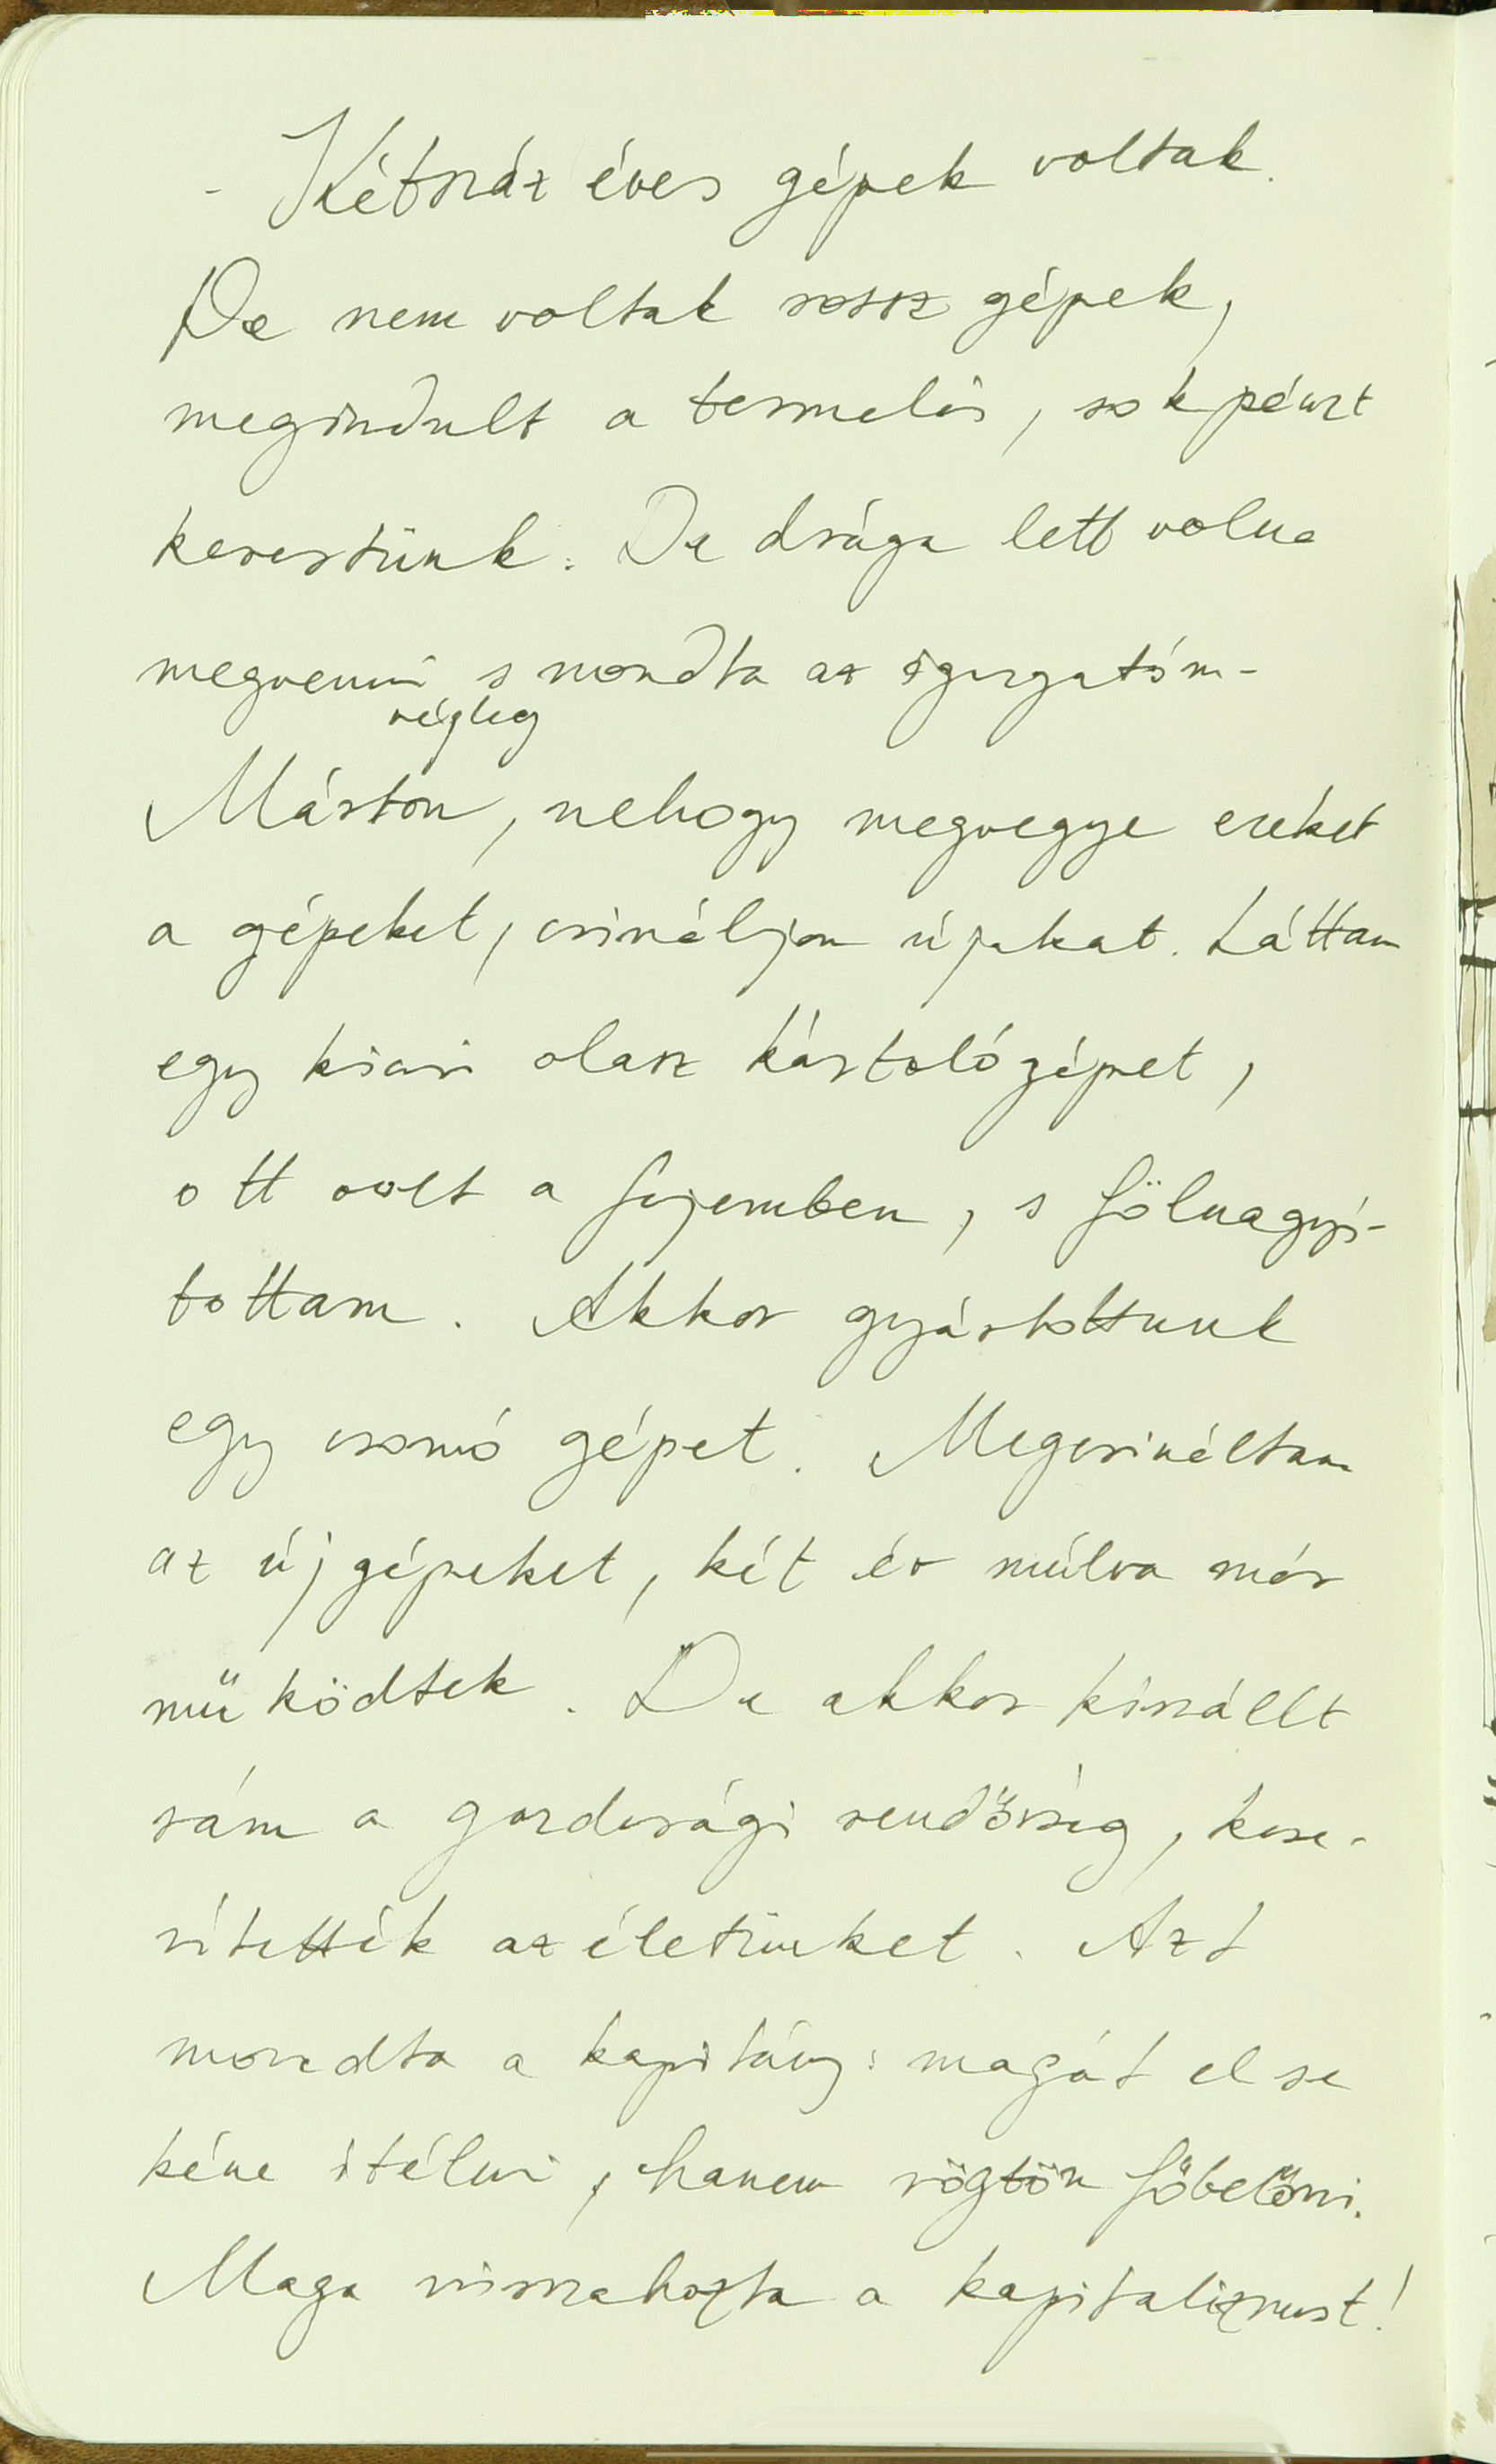 - Kétszáz éves gépek voltak.
De nem voltak rossz gépek,
megindult a termelés, sok pénzt
kerestünk. De drága lett volna
megvenni s mondta az igazgatóm -
végleg
Márton, nehogy megvegye ezeket
a gépeket, csináljon újakat. Láttam
egy kicsi olasz kártológépet,
ott volt a fejemben, s fölnagyí-
tottam. Akkor gyártottunk
egy csomó gépet. Megcsináltam
az új gépeket, két év múlva már
működtek. De akkor kiszállt
rám a gazdasági rendőrség, kese-
rítették az életünket. Azt
mondta a kapitány: magát el se
kéne itélni, hanem rögtön főbelőni.
Maga visszahozta a kapitalizmust!